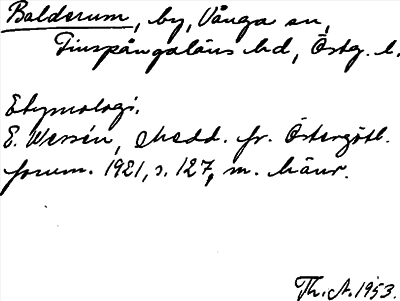 Balderum, by, Vånga sn,
Finspångaläns hd, Östg. l.
Etymologi.
E. Wessén, Medd. fr. Östergötl.
fornm. 1921, s. 127, m. hänv.
Th. A. 1953.